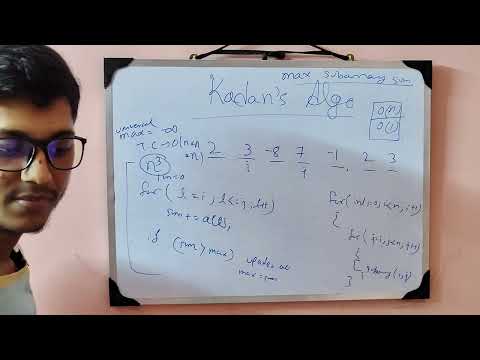 max subarray sum
Kadan's Algo
O(n)
O(1)
universal
max = -∞
T.C → O(n*n
*n)
2 3 -8 7 -1 2 3
i j
n³
sum=0
for( k=i, k<=j, k++)
sum += a[k];
if (sum > max) update as
max = sum
for( i=0, i<n, i++)
{
for( j=i, j<n, j++)
{
}